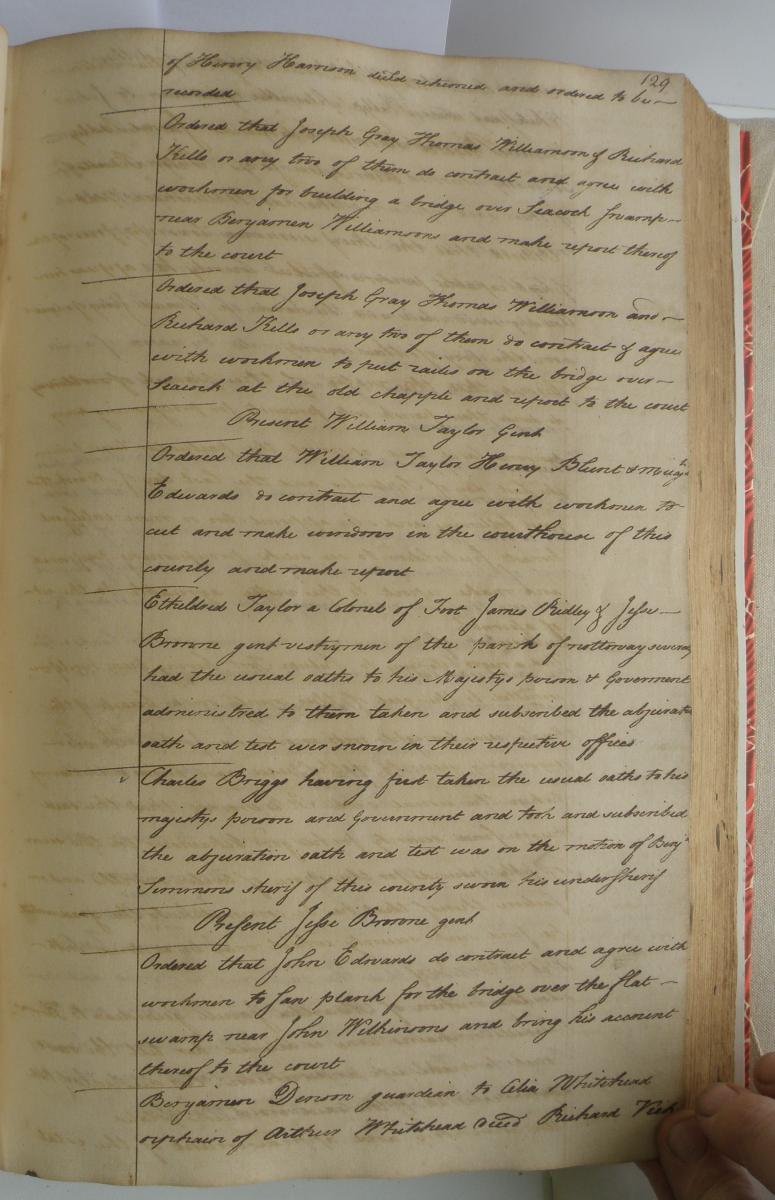 129
of Henry Harrison deced returned and ordered to be
recorded
Ordered that Joseph Gray Thomas Williamson & Richard
Kello or any two of them do contract and agree with
workmen for building a bridge over Seacock swamp
near Benjamen Williamsons and make report thereof
to the court
Ordered that Joseph Gray Thomas Williamson and
Richard Kello or any two of them do contract & agree
with workmen to put railes on the bridge over
Seacock at the old chapple and report to the court
Present William Taylor Gent
Ordered that William Taylor Henry Blunt &
Edwards do contract and agree with workmen to
cut and make windows in the courthouse of this
county and make report
Etheldred Taylor a Colonel of Foot James Ridley & Jesse
Browne gent vestrymen of the parish of nottoway
had the usual oaths to his Majestys person & Goverment
administred to them taken and subscribed the
oath and test wer sworn in their respective offices
Charles Briggs having first taken the usual oaths to his
majestys person and Government and took and subscribed
the abjuration oath and test was on the motion of Benj
Simmons sherif of this county sworn his undersherif
Present Jesse Browne gent
Ordered that John Edwards do contract and agree with
workmen to saw plank for the bridge over the flat
swamp near John Wilkinsons and bring his account
thereof to the court
Benjamen Denson guardian to Celia Whitehead
orphain of Arthur Whitehead deced Richard